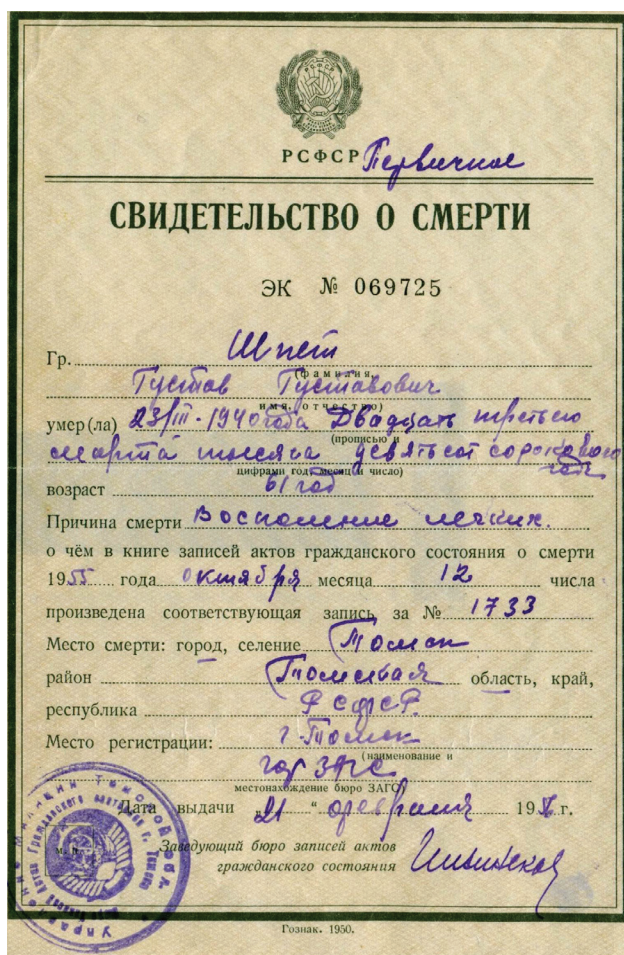 РСФСР
РСФСР Первичное
СВИДЕТЕЛЬСТВО О СМЕРТИ
ЭК № 069725
Гр. Шпет
(фамилия,
Густав Густавович
имя, отчество)
умер(ла) 23/III-1940 года Двадцать третьего
(прописью и
марта тысяча девятьсот сорокового
года
цифрами год, месяц и число)
возраст 61 год
Причина смерти Воспаление легких.
о чём в книге записей актов гражданского состояния о смерти
1955 года октября месяца 12 числа
произведена соответствующая запись за № 1733
Место смерти: город, селение Томск
район Томская область, край,
республика РСФСР.
Место регистрации: г. Томск
(наименование и
гор ЗАГС
местонахождение бюро ЗАГС)
Дата выдачи „21“ февраля 195 г.
М. П.
Заведующий бюро записей актов
гражданского состояния
Гознак. 1950.